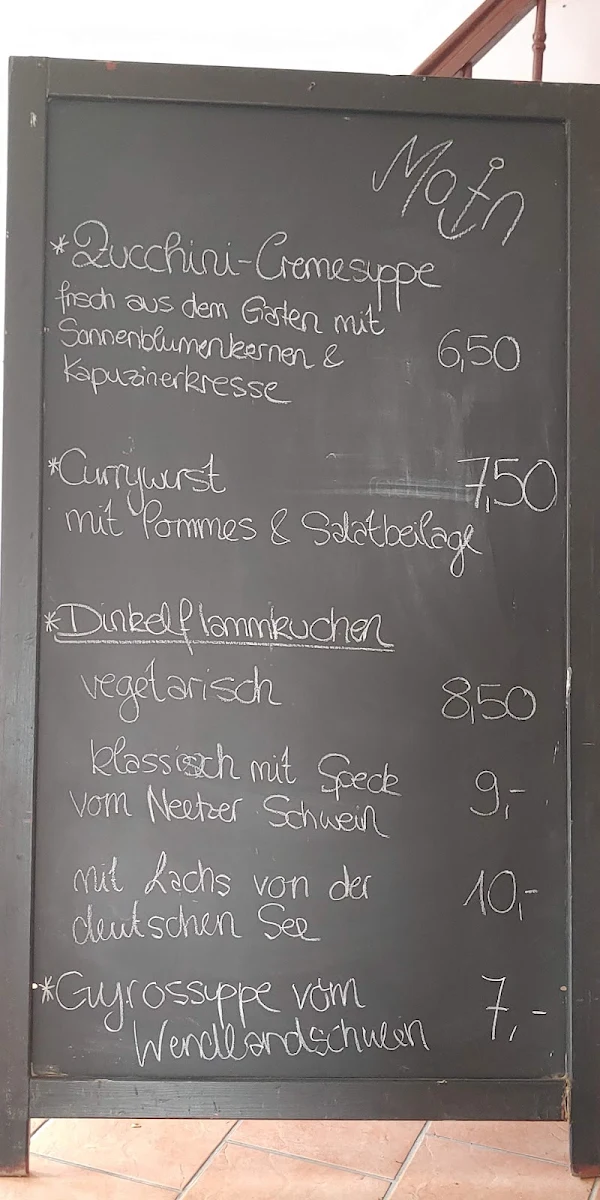 Moin
*Zucchini-Cremesuppe
frisch aus dem Garten mit
Sonnenblumenkernen &
Kapuzinerkresse 6,50
*Currywurst 7,50
mit Pommes & Salatbeilage
*Dinkelflammkuchen
vegetarisch 8,50
klassisch mit Speck
vom Neetzer Schwein 9,-
mit Lachs von der
deutschen See 10,-
*Gyrossuppe vom
Wendlandschwein 7,-